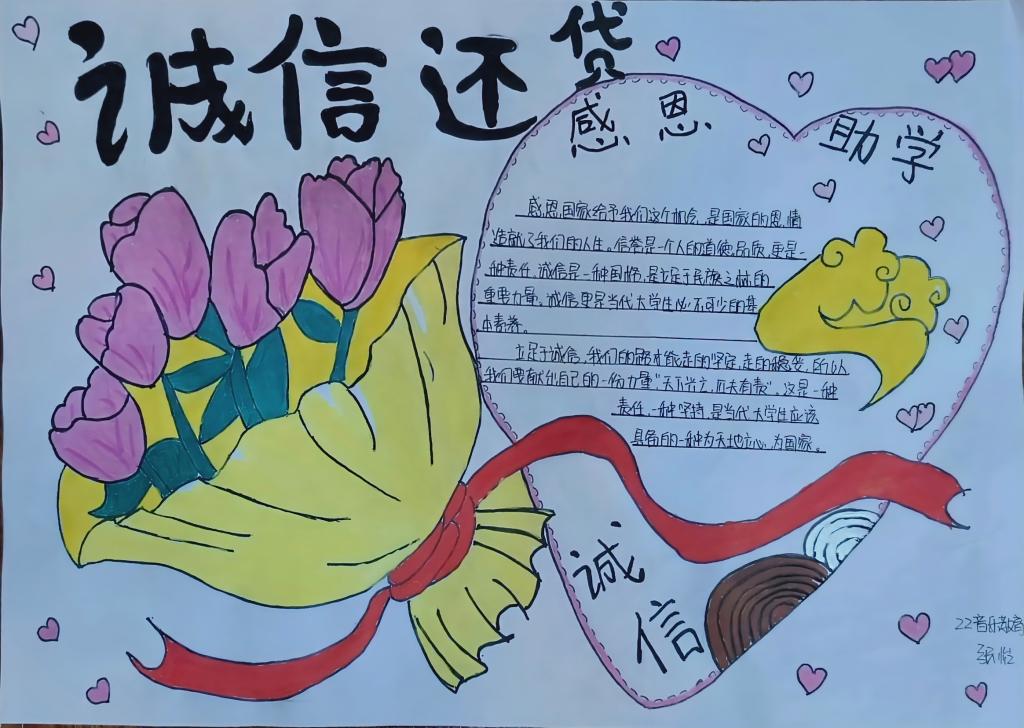 诚信还贷
感恩 助学
感恩国家给予我们这个机会，是国家的恩情
造就了我们的人生。信誉是一个人的道德品质，更是一
种责任，诚信是一种国格，是立足于民族之林的
重要力量。诚信更是当代大学生必不可少的基
本素养。
立足于诚信，我们的路才能走的坚定，走的稳妥，所以
我们要献出自己的一份力量"天下兴亡，匹夫有责"。这是一种
责任，一种坚持，是当代大学生应该
具备的一种为天地立心，为国家。
诚信
22音乐教育
张